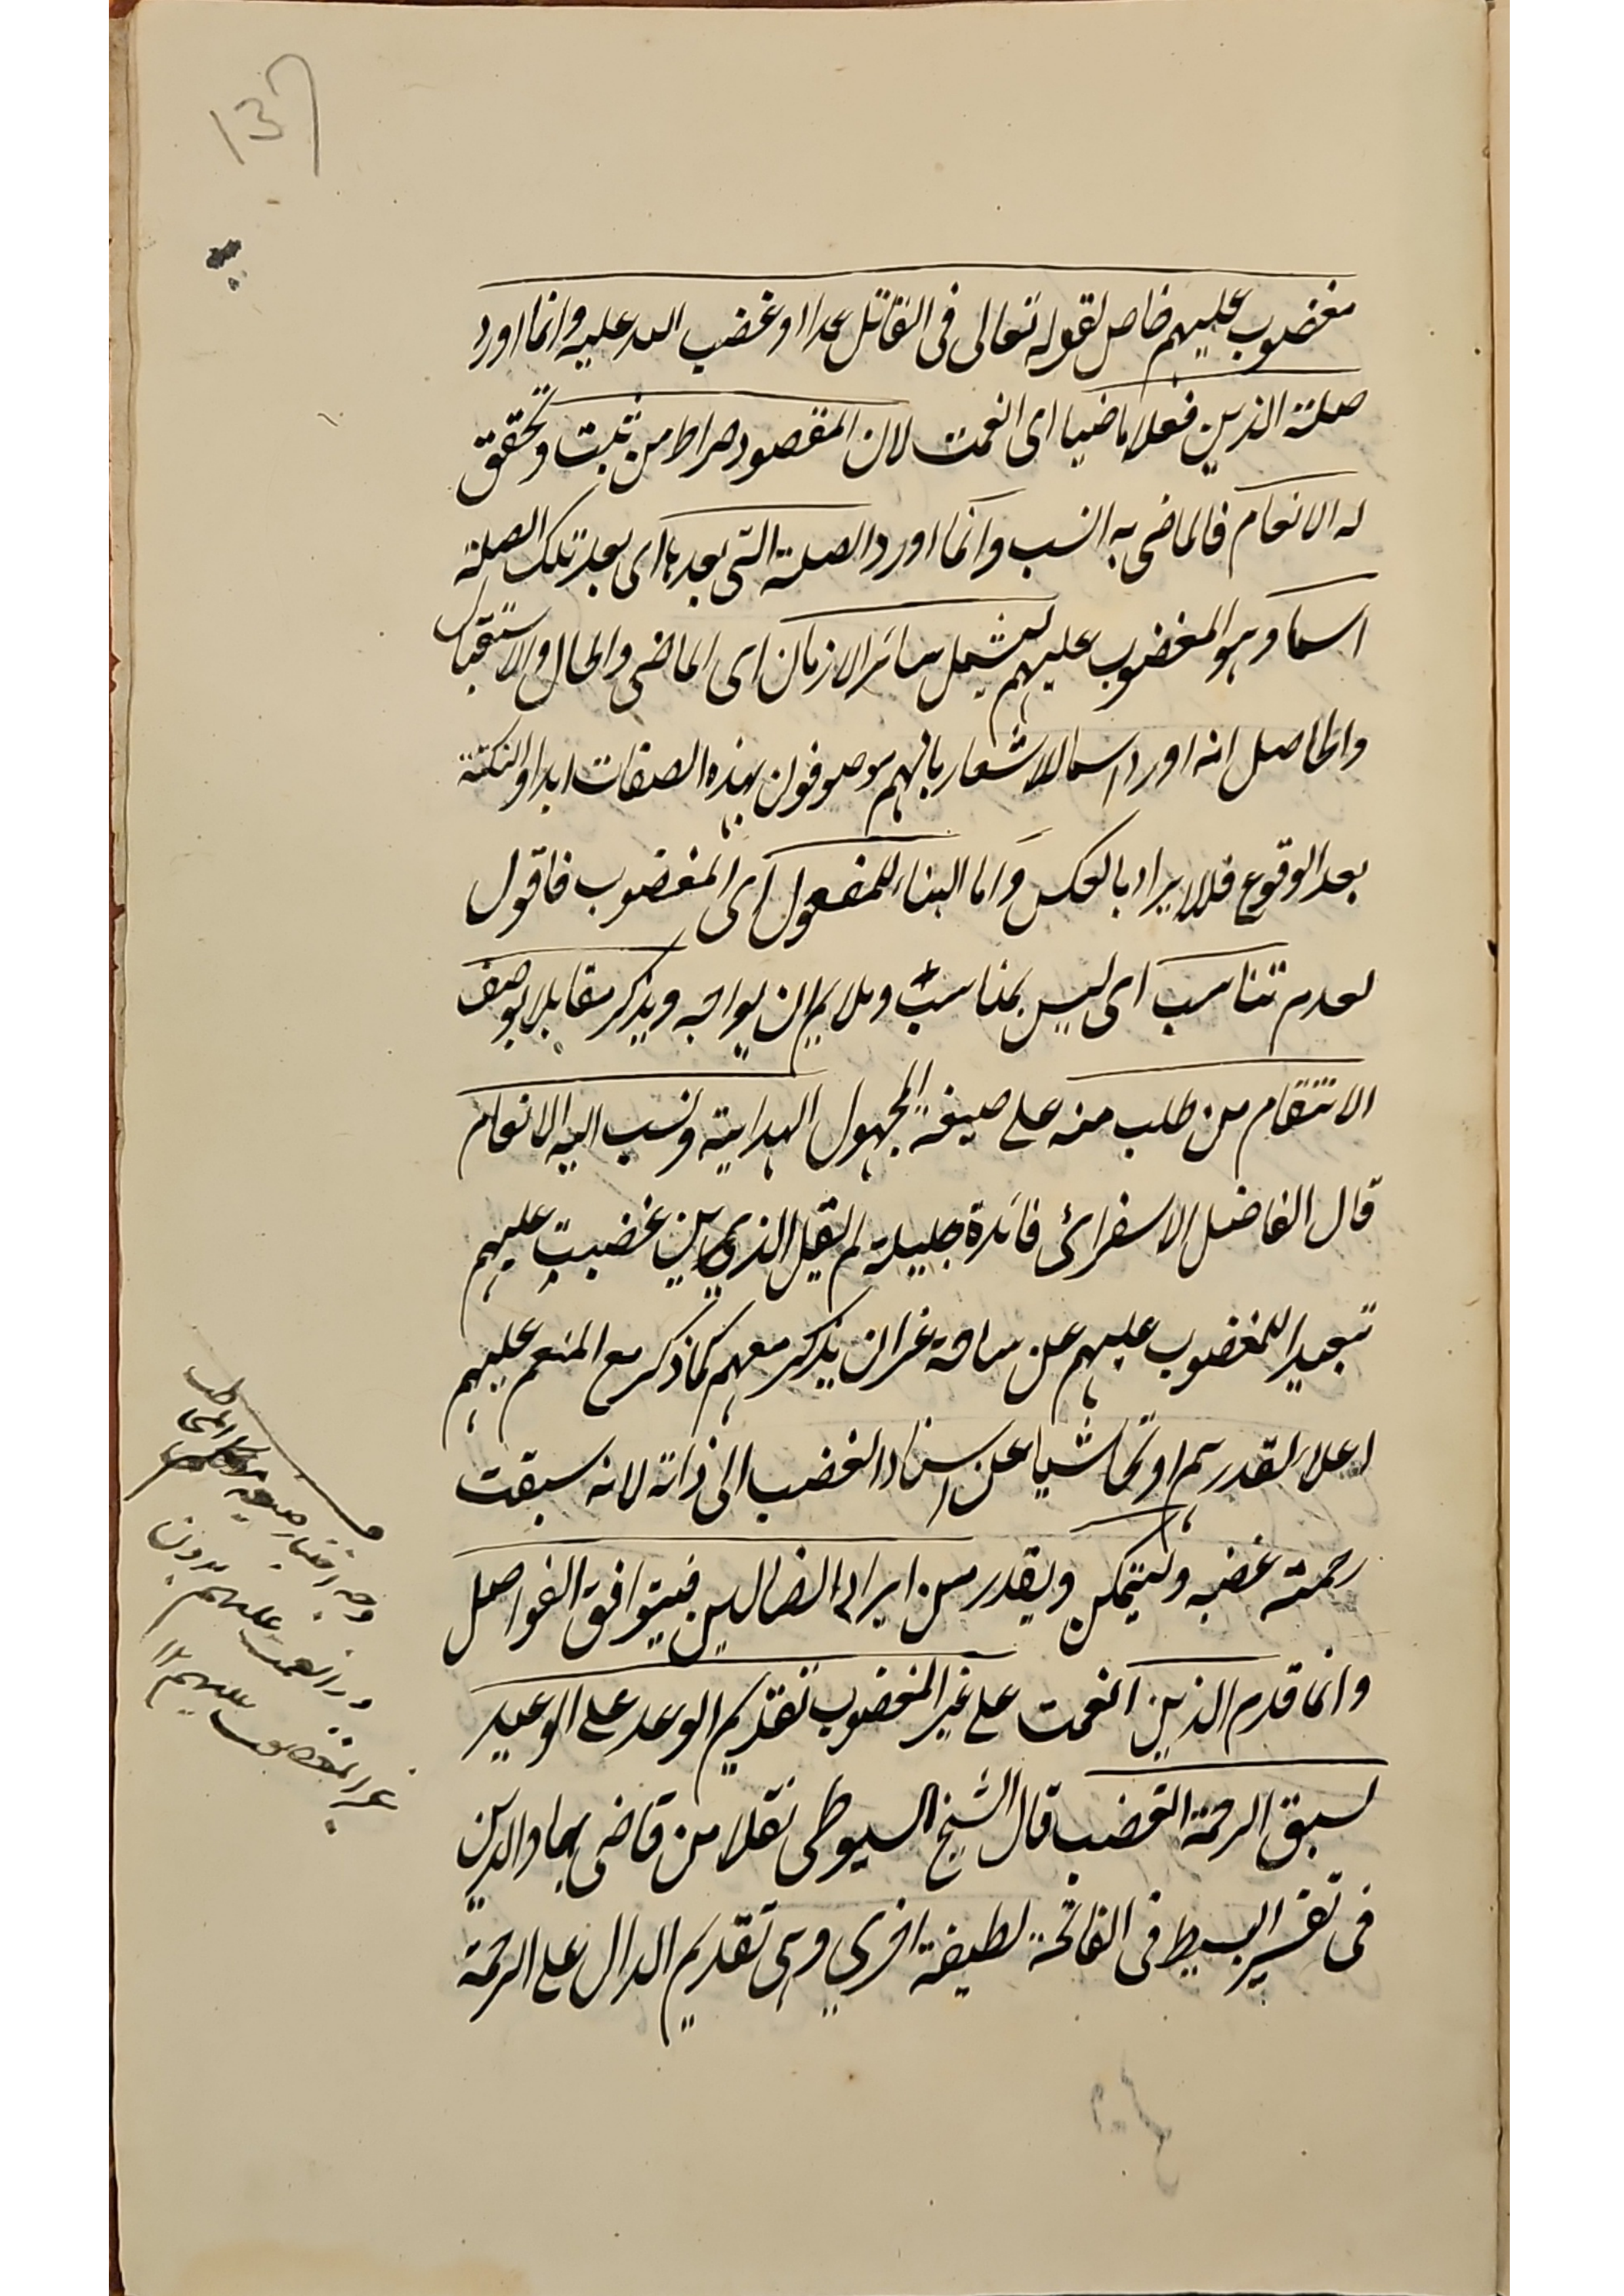 137
مغضوب عليهم خاص لقوله تعالى فى القاتل عمدا وغضب الله عليه وانما اورد
صلة الذين فعلا ماضيا اى انعمت لان المقصود صراط من ثبت وتحقق
له الانعام فالماضى به انسب وانما اورد الصلة التى بعدها اى بعد تلك الصلة
اسما وهو المغضوب عليهم ليشمل سائر الازمان اى الماضى والحال والاستقبال
والحاصل انه اورد اسما للاشعار بانهم موصوفون بهذه الصفات ابدا والنكتة
بعد الوقوع فلا يراد بالعكس واما البناء للمفعول اى المغضوب فاقول
لعدم تناسب اى ليس بمناسب وملايم ان يواجه ويذكر مقابلا بوصف
الانتقام من طلب منه على صيغة المجهول الهداية ونسب اليه الانعام
قال الفاضل الاسفرائى فائدة جليلة لم يقل الذين غضبت عليهم
تبعيدا للمغضوب عليهم عن ساحة عز ان يذكر معهم كما ذكر مع المنعم عليهم
اعلاء لقدرهم او تحاشيا عن اسناد الغضب الى ذاته لانه سبقت
رحمته غضبه وليتمكن ويقدر من ايراد الضالين فيتوافق الفواصل
وانما قدم الذين انعمت على غير المغضوب تقديم الوعد على الوعيد
لسبق الرحمة الغضب قال الشيخ السيوطى نقلا من قاضى بهاء الدين
فى تفسير البسيط فى الفاتحة لطيفة اخرى وهى تقديم الدال على الرحمة
وجه اختيار صيغه المخاطب
در انعمت عليهم بدون
غير المغضوب عليهم ١٢